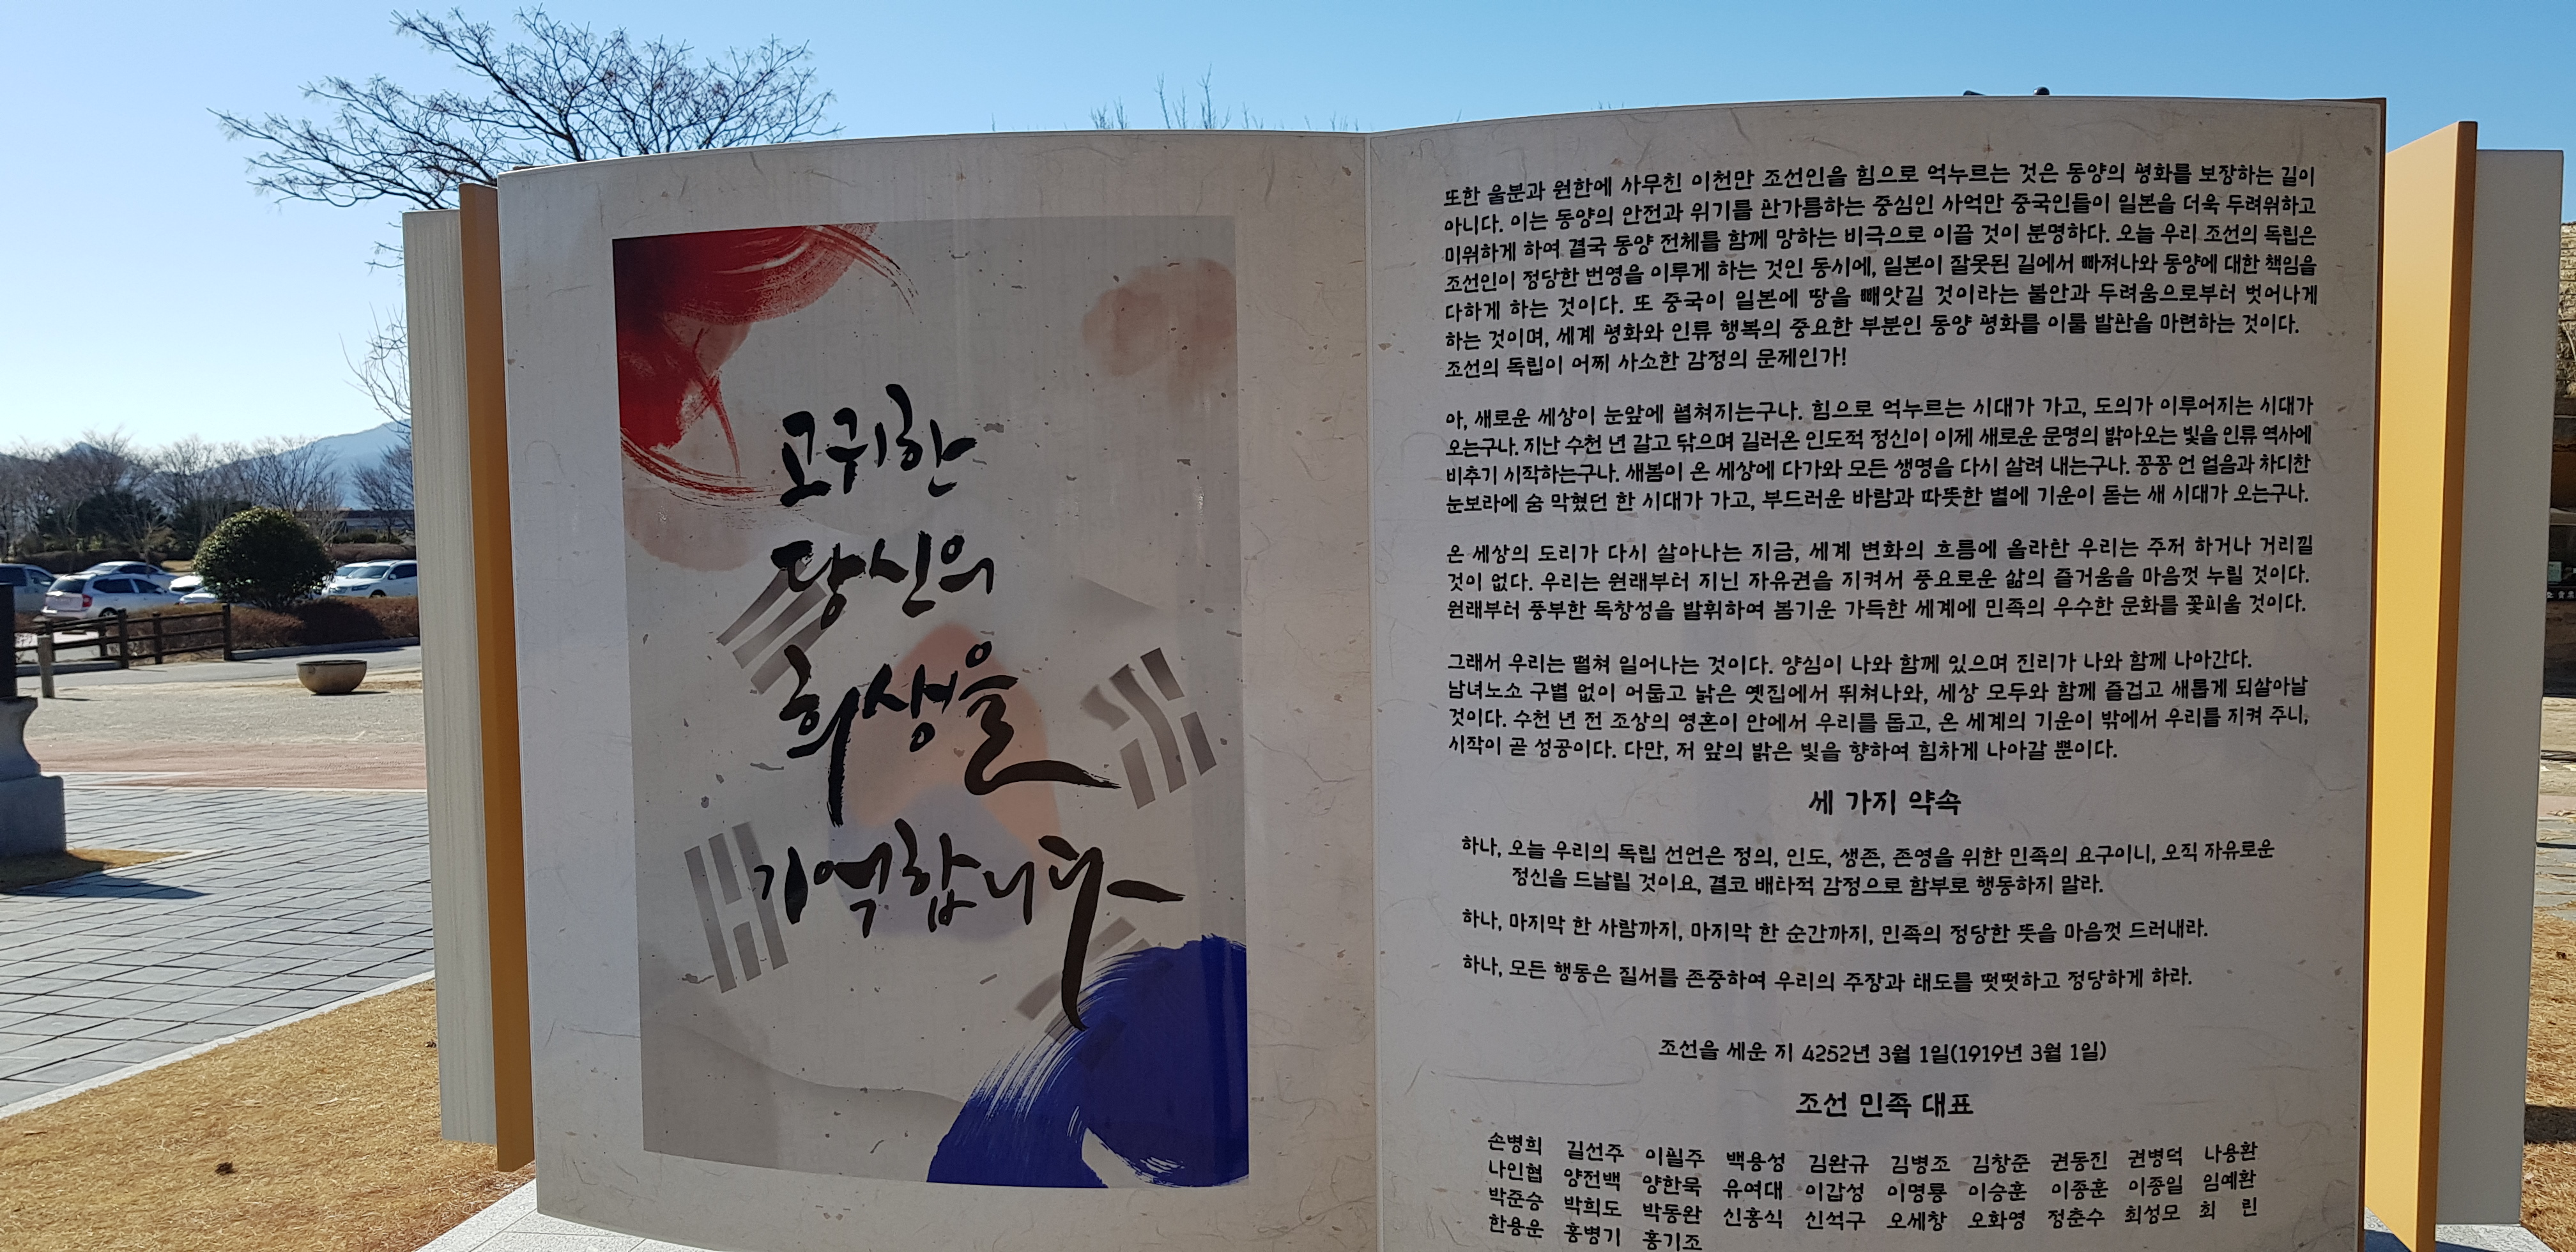 고귀한
당신의
희생을
기억합니다
또한 울분과 원한에 사무친 이천만 조선인을 힘으로 억누르는 것은 동양의 평화를 보장하는 길이
아니다. 이는 동양의 안전과 위기를 판가름하는 중심인 사억만 중국인들이 일본을 더욱 두려워하고
미워하게 하여 결국 동양 전체를 함께 망하는 비극으로 이끌 것이 분명하다. 오늘 우리 조선의 독립은
조선인이 정당한 번영을 이루게 하는 것인 동시에, 일본이 잘못된 길에서 빠져나와 동양에 대한 책임을
다하게 하는 것이다. 또 중국이 일본에 땅을 빼앗길 것이라는 불안과 두려움으로부터 벗어나게
하는 것이며, 세계 평화와 인류 행복의 중요한 부분인 동양 평화를 이룰 발판을 마련하는 것이다.
조선의 독립이 어찌 사소한 감정의 문제인가!
아, 새로운 세상이 눈앞에 펼쳐지는구나. 힘으로 억누르는 시대가 가고, 도의가 이루어지는 시대가
오는구나. 지난 수천 년 갈고 닦으며 길러온 인도적 정신이 이제 새로운 문명의 밝아오는 빛을 인류 역사에
비추기 시작하는구나. 새봄이 온 세상에 다가와 모든 생명을 다시 살려 내는구나. 꽁꽁 언 얼음과 차디찬
눈보라에 숨 막혔던 한 시대가 가고, 부드러운 바람과 따뜻한 볕에 기운이 돋는 새 시대가 오는구나.
온 세상의 도리가 다시 살아나는 지금, 세계 변화의 흐름에 올라탄 우리는 주저 하거나 거리낄
것이 없다. 우리는 원래부터 지닌 자유권을 지켜서 풍요로운 삶의 즐거움을 마음껏 누릴 것이다.
원래부터 풍부한 독창성을 발휘하여 봄기운 가득한 세계에 민족의 우수한 문화를 꽃피울 것이다.
그래서 우리는 떨쳐 일어나는 것이다. 양심이 나와 함께 있으며 진리가 나와 함께 나아간다.
남녀노소 구별 없이 어둡고 낡은 옛집에서 뛰쳐나와, 세상 모두와 함께 즐겁고 새롭게 되살아날
것이다. 수천 년 전 조상의 영혼이 안에서 우리를 돕고, 온 세계의 기운이 밖에서 우리를 지켜 주니,
시작이 곧 성공이다. 다만, 저 앞의 밝은 빛을 향하여 힘차게 나아갈 뿐이다.
세 가지 약속
하나, 오늘 우리의 독립 선언은 정의, 인도, 생존, 존영을 위한 민족의 요구이니, 오직 자유로운
정신을 드날릴 것이요, 결코 배타적 감정으로 함부로 행동하지 말라.
하나, 마지막 한 사람까지, 마지막 한 순간까지, 민족의 정당한 뜻을 마음껏 드러내라.
하나, 모든 행동은 질서를 존중하여 우리의 주장과 태도를 떳떳하고 정당하게 하라.
조선을 세운 지 4252년 3월 1일(1919년 3월 1일)
조선 민족 대표
손병희 길선주 이필주 백용성 김완규 김병조 김창준 권동진 권병덕 나용환
나인협 양전백 양한묵 유여대 이갑성 이명룡 이승훈 이종훈 이종일 임예환
박준승 박희도 박동완 신홍식 신석구 오세창 오화영 정춘수 최성모 최 린
한용운 홍병기 홍기조